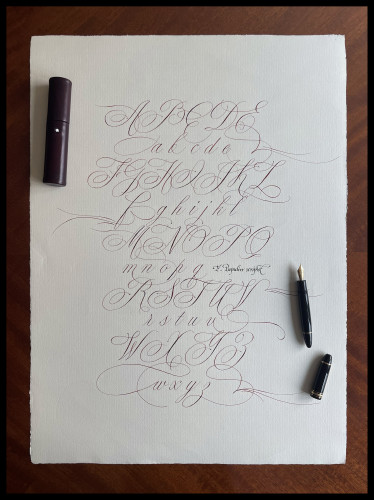 A B C D E
a b c d e
F G H I J K L
f g h i j k l
M N O P Q
m n o p q
R S T U V
r s t u v
W X Y Z
w x y z